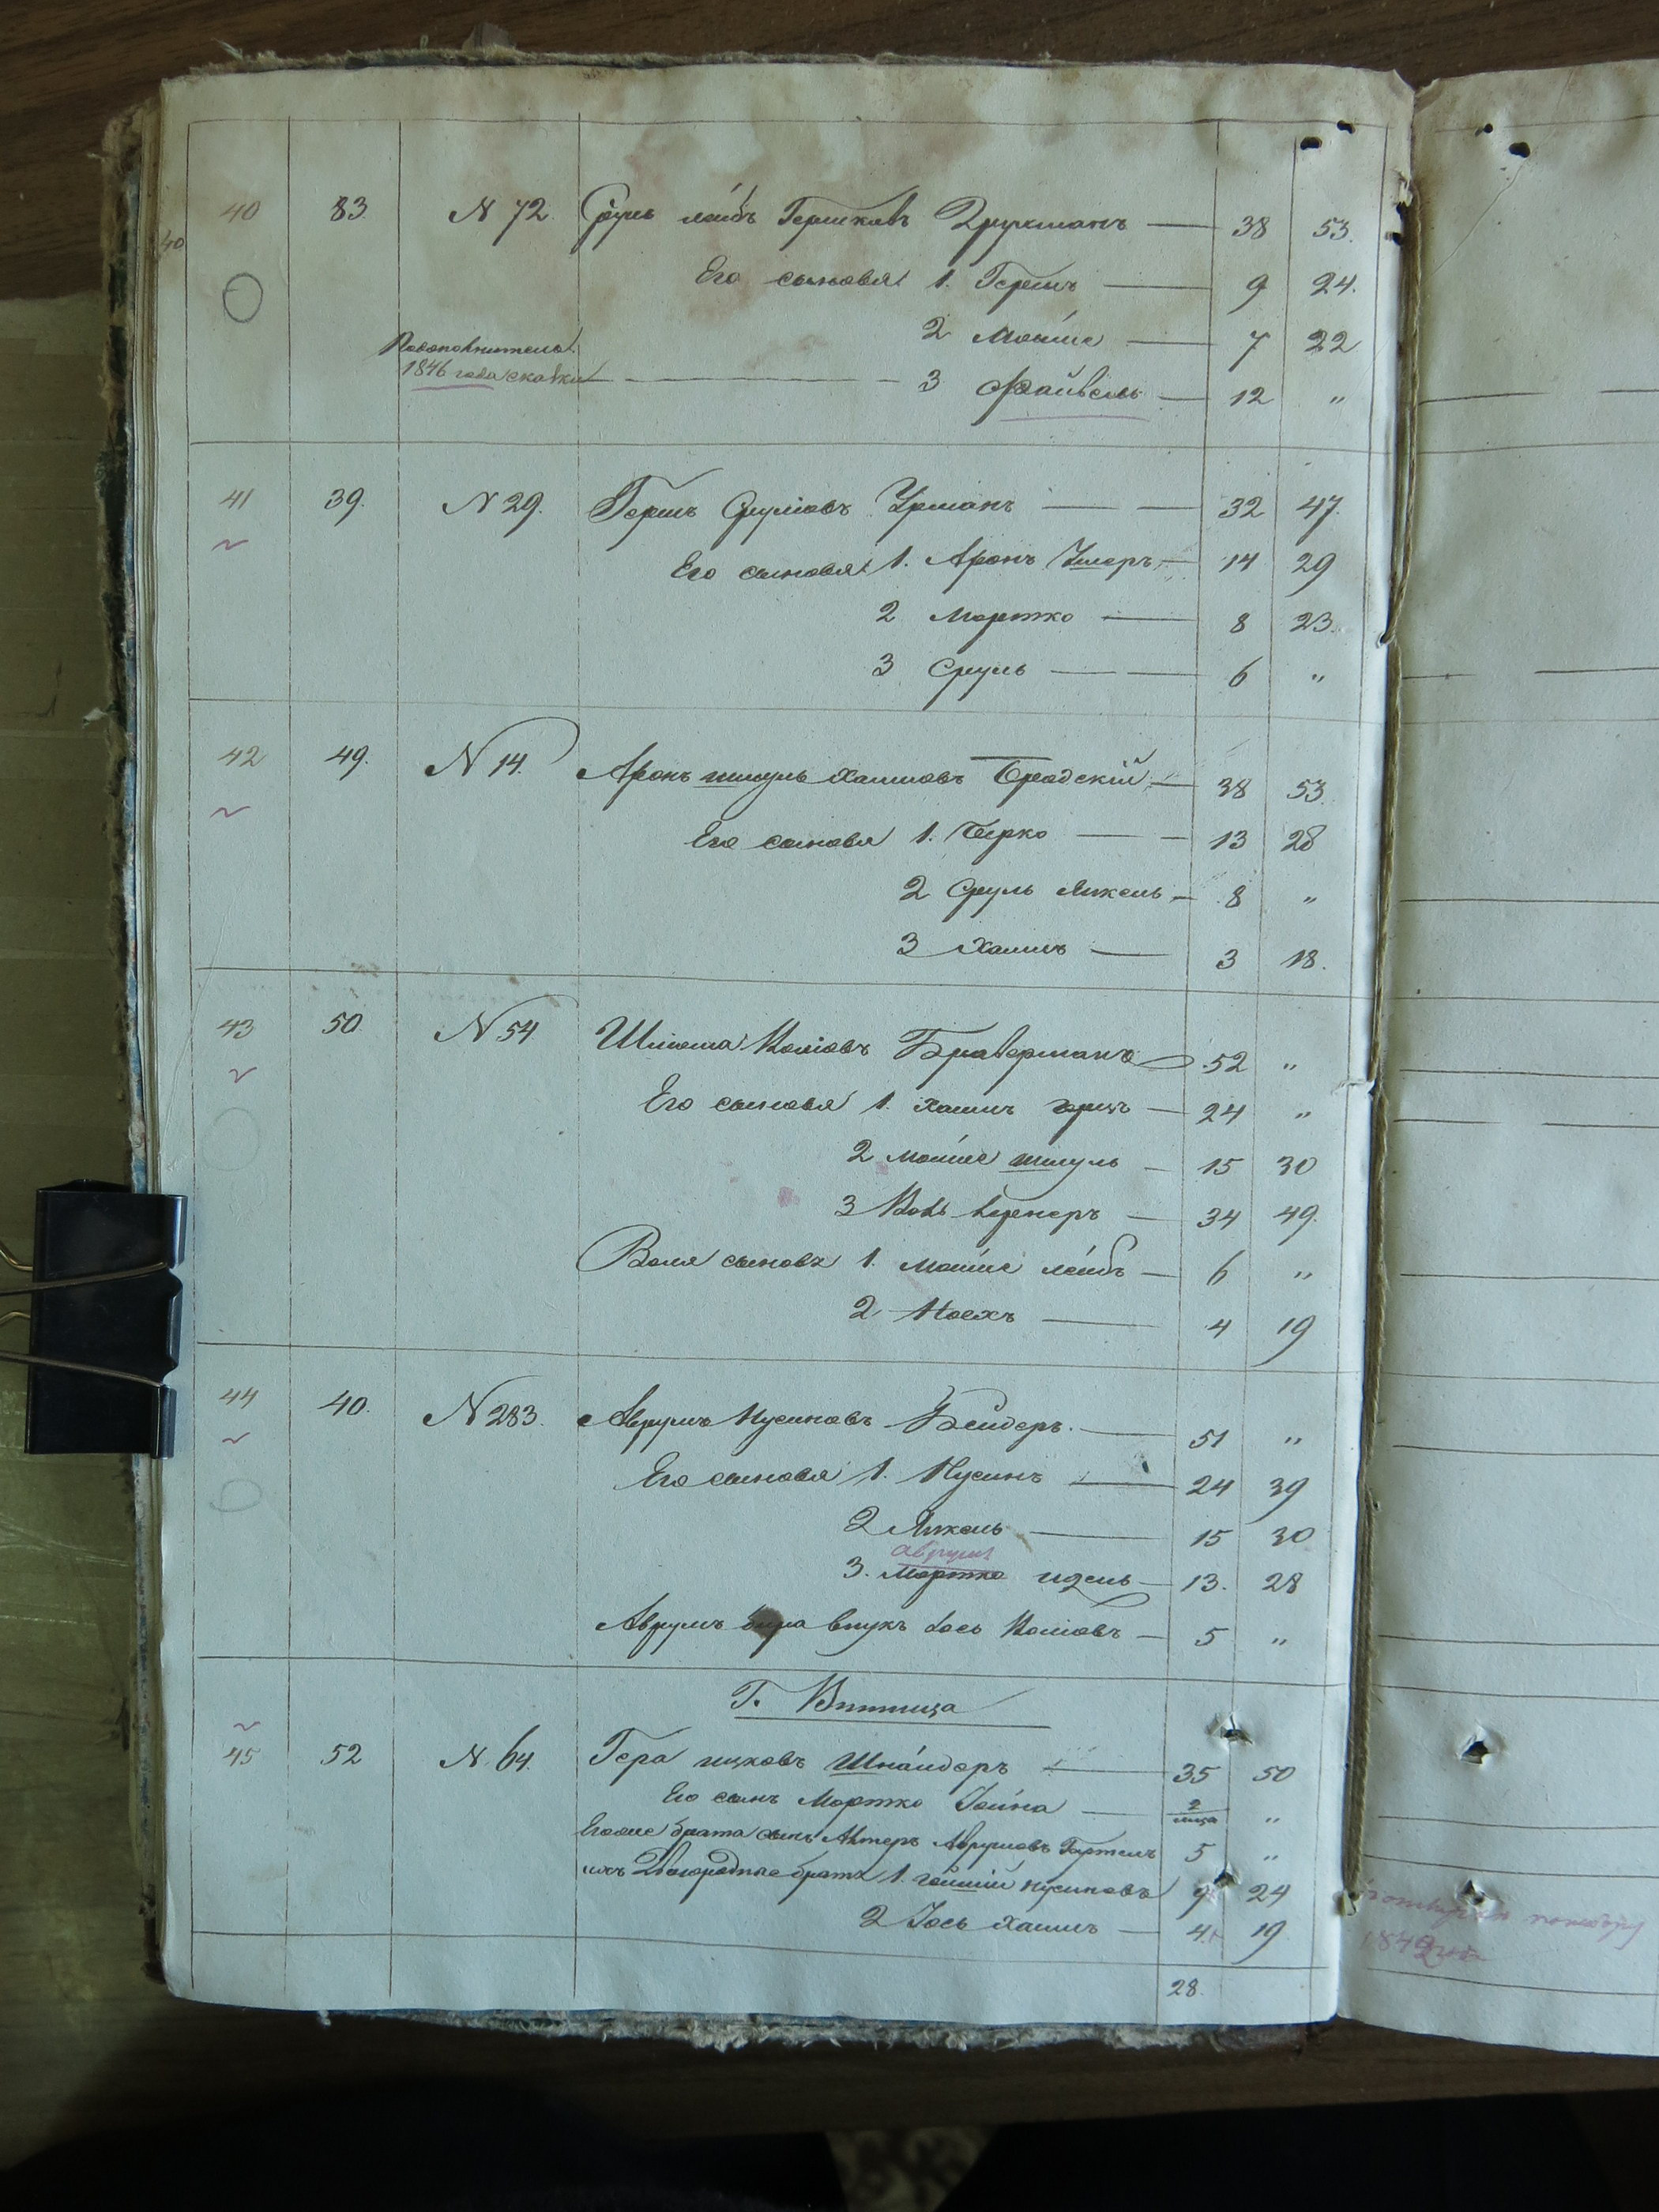 40 83. N 72. Сруль лейбъ Гершковъ Друкманъ — 38 53.
40
Его сыновья 1. Гершъ — 9 24.
2 Мошко — 7 22
По дополнительной
1846 года сказки — 3 Файвель — 12 „
41 39. N 29. Гершъ Срулiовъ Урманъ — 32 47.
Его сыновья 1. Аронъ Умеръ — 14 29
2 Мортко — 8 23.
3 Сруль — 6 „
42 49. N 14. Аронъ шмуль Хаимовъ Бродскiй — 38 53.
Его сыновья 1. Берко — 13 28
2 Сруль Янкель — 8 „
3 Хаимъ — 3 18.
43 50. N 54 Шлiома Волiовъ Браверманъ 52 „
Его сыновья 1. Хаимъ герцъ — 24 „
2 Мойше шмуль — 15 30
3 34 49.
Воля сыновья 1. Мойше лейбъ — 6 „
2 Ноехъ — 4 19
44 40. N 283. Аврумъ Нусиновъ Бейдеръ. — 51 „
Его сыновья 1. Нусинъ — 24 39
2 Янкель — 15 30
Аврумъ
3. Мортко идель — 13. 28
Аврумъ внукъ Iось Волiовъ — 5 „
Г. Винница
45 52 N. 64. Гера ицковъ Шнайдеръ — 35 50
Его сынъ Мортко Iойна — 2 „
Его же брата сынъ Аврумовъ 5 „
ихъ Двоюродные братья 1. Нусиновъ 9 24
2 Iось Хаимъ — 4. 19
1842 года
28.